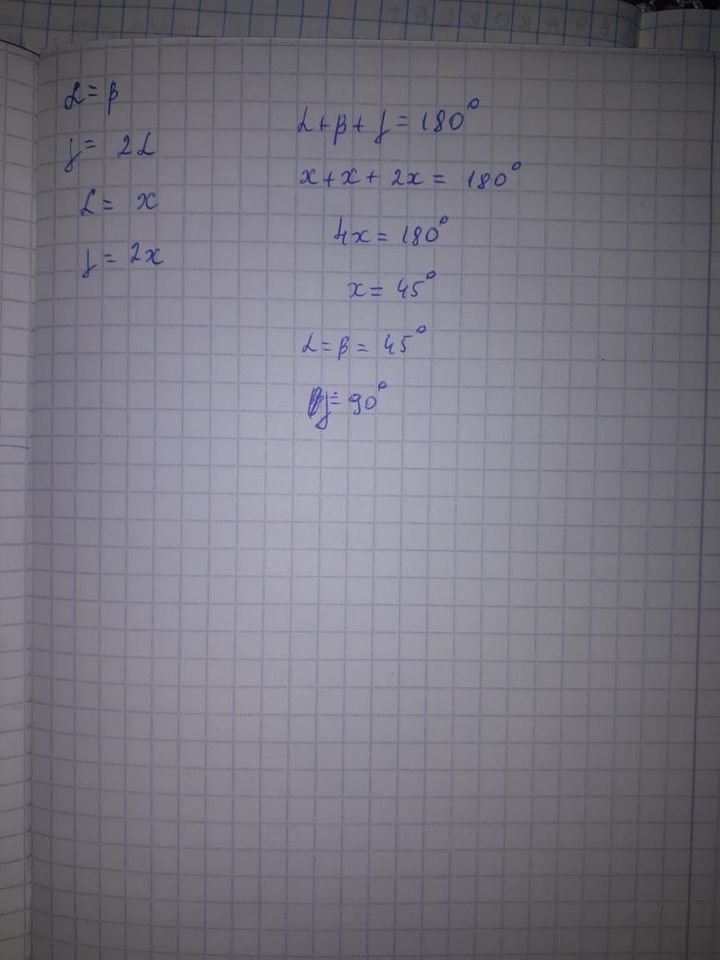 α = β
γ = 2α
α = x
γ = 2x
α + β + γ = 180°
x + x + 2x = 180°
4x = 180°
x = 45°
α = β = 45°
γ = 90°